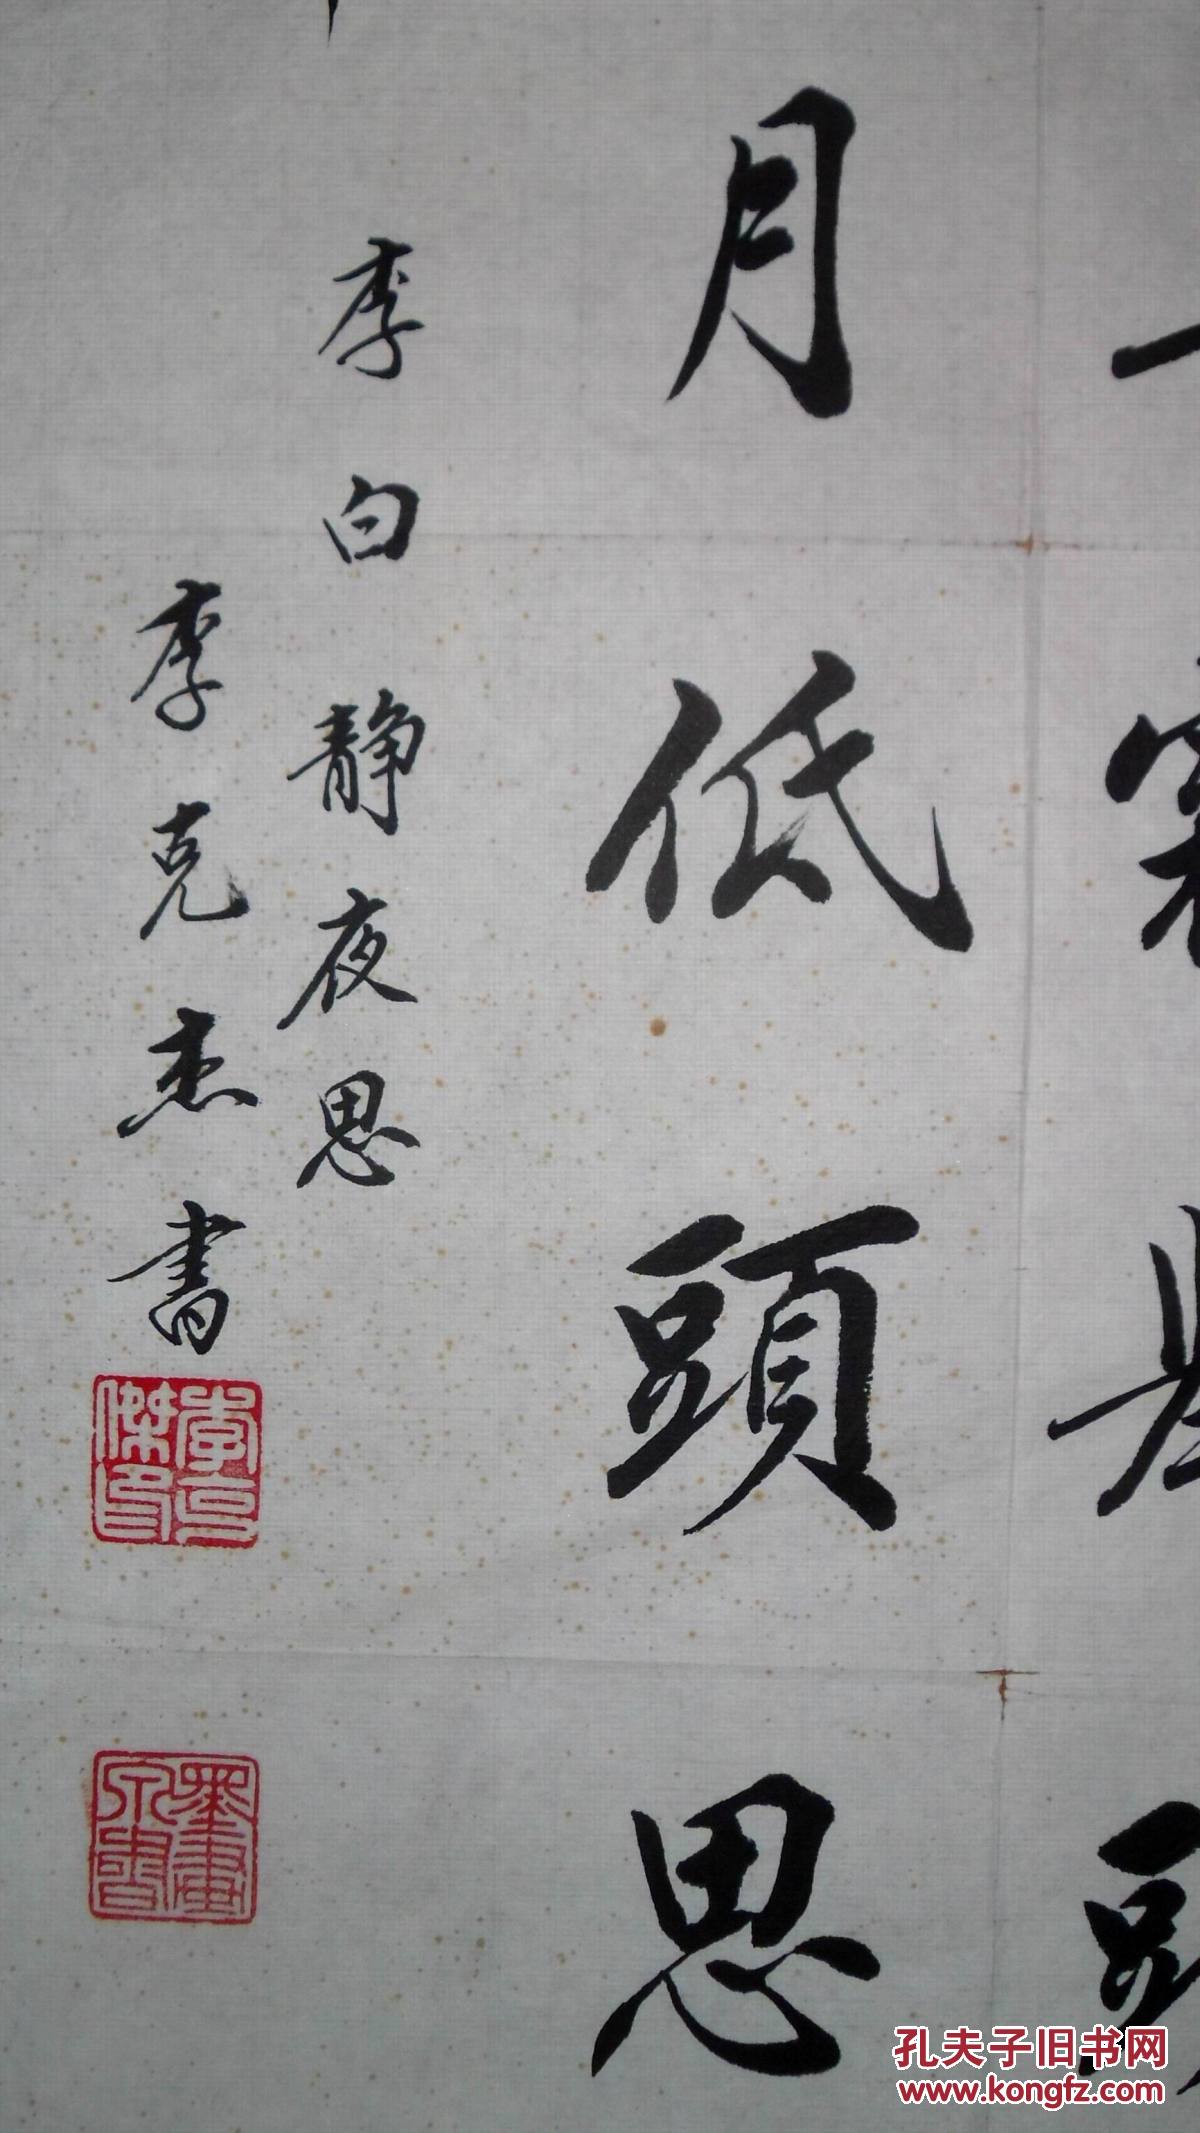 月低頭思
李白静夜思
李克杰書
李克傑印
孔夫子旧书网
www.kongfz.com